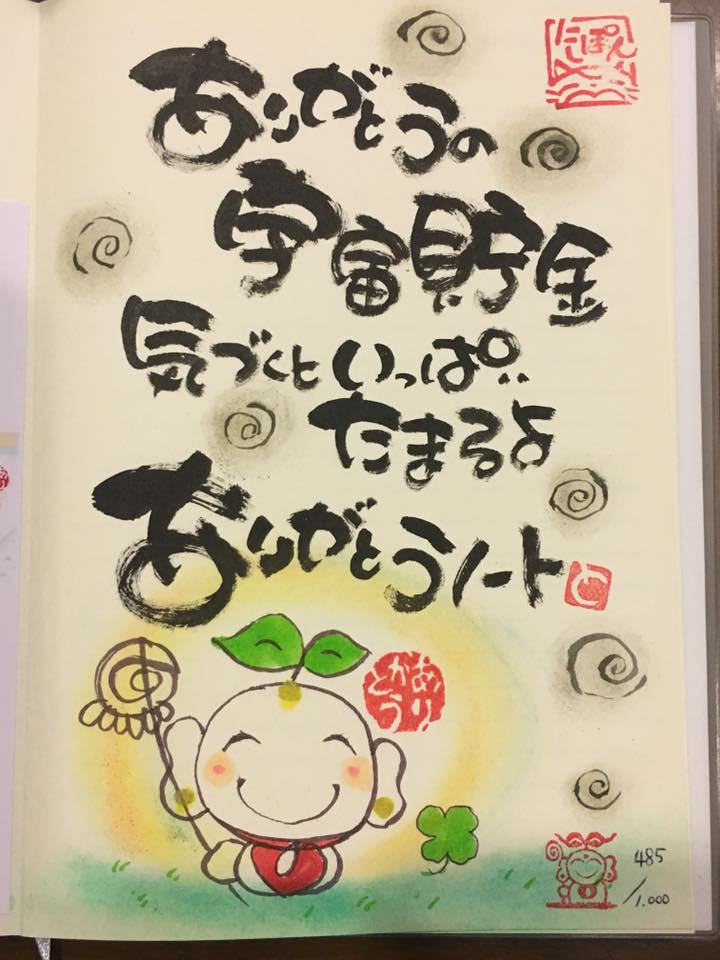 にっぽん
ありがとうの
宇宙貯金
気づくといっぱい
たまるよ
ありがとうノート
と
ありがとう
485
/1.000